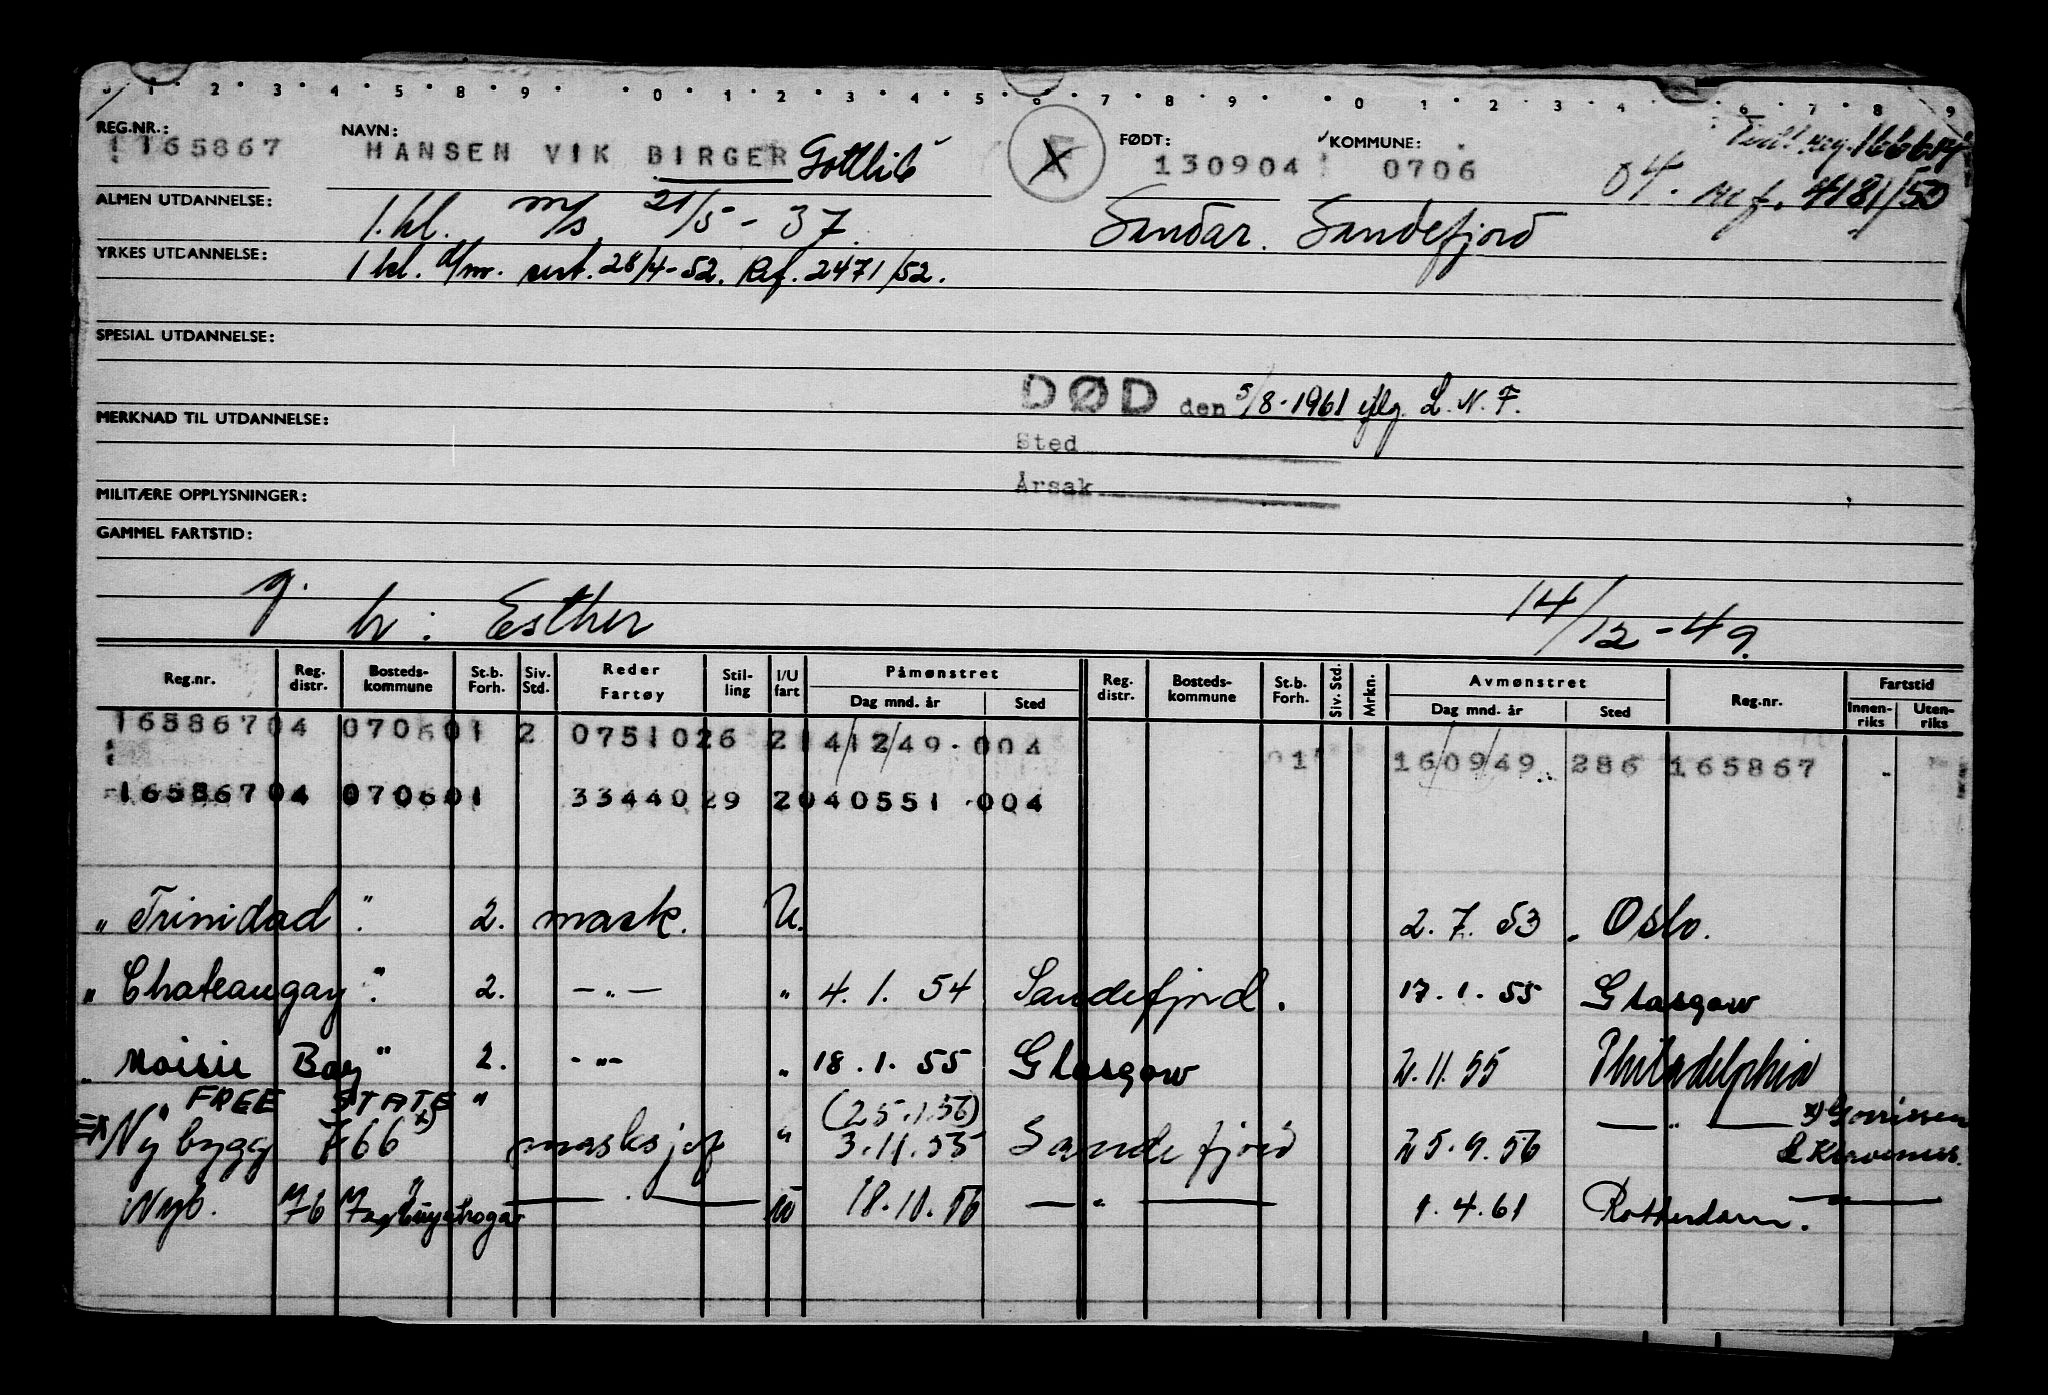 1 2 3 4 5 8 9 0 1 2 3 4 5 6 7 8 9 0 1 2 3 4 6 7 8 9
REG.NR.: NAVN: FØDT: KOMMUNE:
165867 HANSEN VIK BIRGER Gottlib X 130904 0706 Tidl. reg. 166684
04. Ref. 4181/50
ALMEN UTDANNELSE: 1. kl. m/s 21/5-37. Sandar. Sandefjord
YRKES UTDANNELSE: 1 kl. d/m. sert. 28/4-52. Ref. 2471/52.
SPESIAL UTDANNELSE:
DØD den 5/8-1961 iflg. L.N.F.
MERKNAD TIL UTDANNELSE:
Sted
Årsak
MILITÆRE OPPLYSNINGER:
GAMMEL FARTSTID:
g. h: Esther 14/12-49.
Reg.nr. Reg. distr. Bosteds-kommune St.b. Forh. Siv. Std. Reder Fartøy Stil-ling I/U fart Påmønstret Dag mnd. år Sted Reg. distr. Bosteds-kommune St.b. Forh. Siv. Std. Mrkn. Avmønstret Dag mnd. år Sted Reg.nr. Fartstid Innen-riks Uten-riks
165867 04 0706 01 2 07510 26 2 14/12/49 004
01 16/09/49 286 165867
165867 04 0706 01 33440 29 2 040551 004
" Trinidad " 2. mask. U. 2.7.53 Oslo.
" Chateaugay " 2. -"- " 4.1.54 Sandefjord. 17.1.55 Glasgow
" Moisie Bay " 2. -"- " 18.1.55 Glasgow 2.11.55 Philadelphia
" FREE STATE " (25.1.56)
Nybygg 766 x) masksjef " 3.11.55 Sandefjord 25.9.56 —"— x) Gorrissen & Klaveness.
Nyb. 76 " — 18.10.56 —"— 1.4.61 Rotterdam. —"—